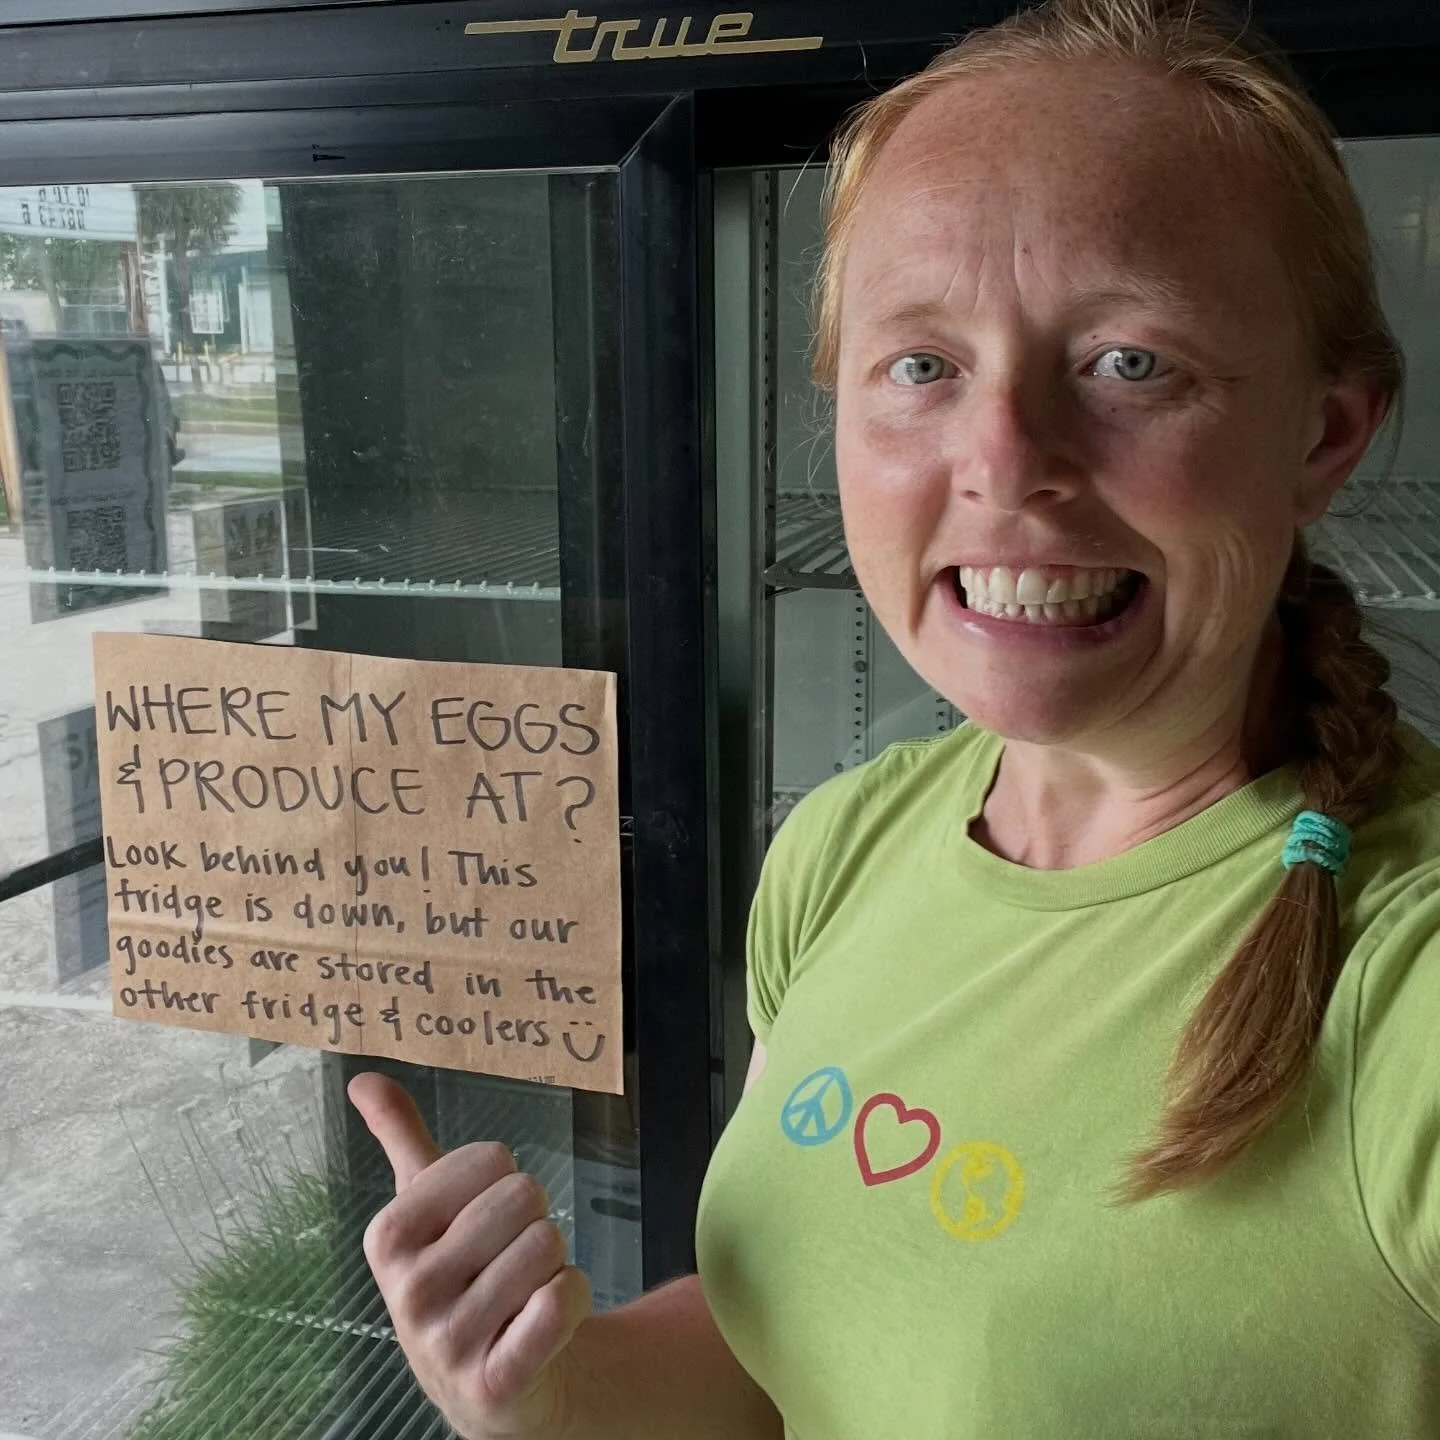 true
WHERE MY EGGS
& PRODUCE AT?
Look behind you! This
fridge is down, but our
goodies are stored in the
other fridge & coolers